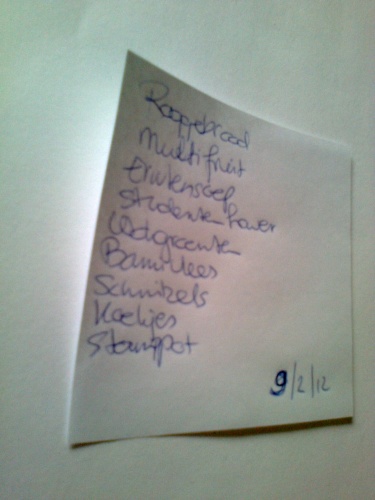 Roggebrood
Multifruit
Erwtensoep
Studentenhaver
Wokgroenten
Bamivlees
Schnitzels
Koekjes
Stamppot
9/2/12